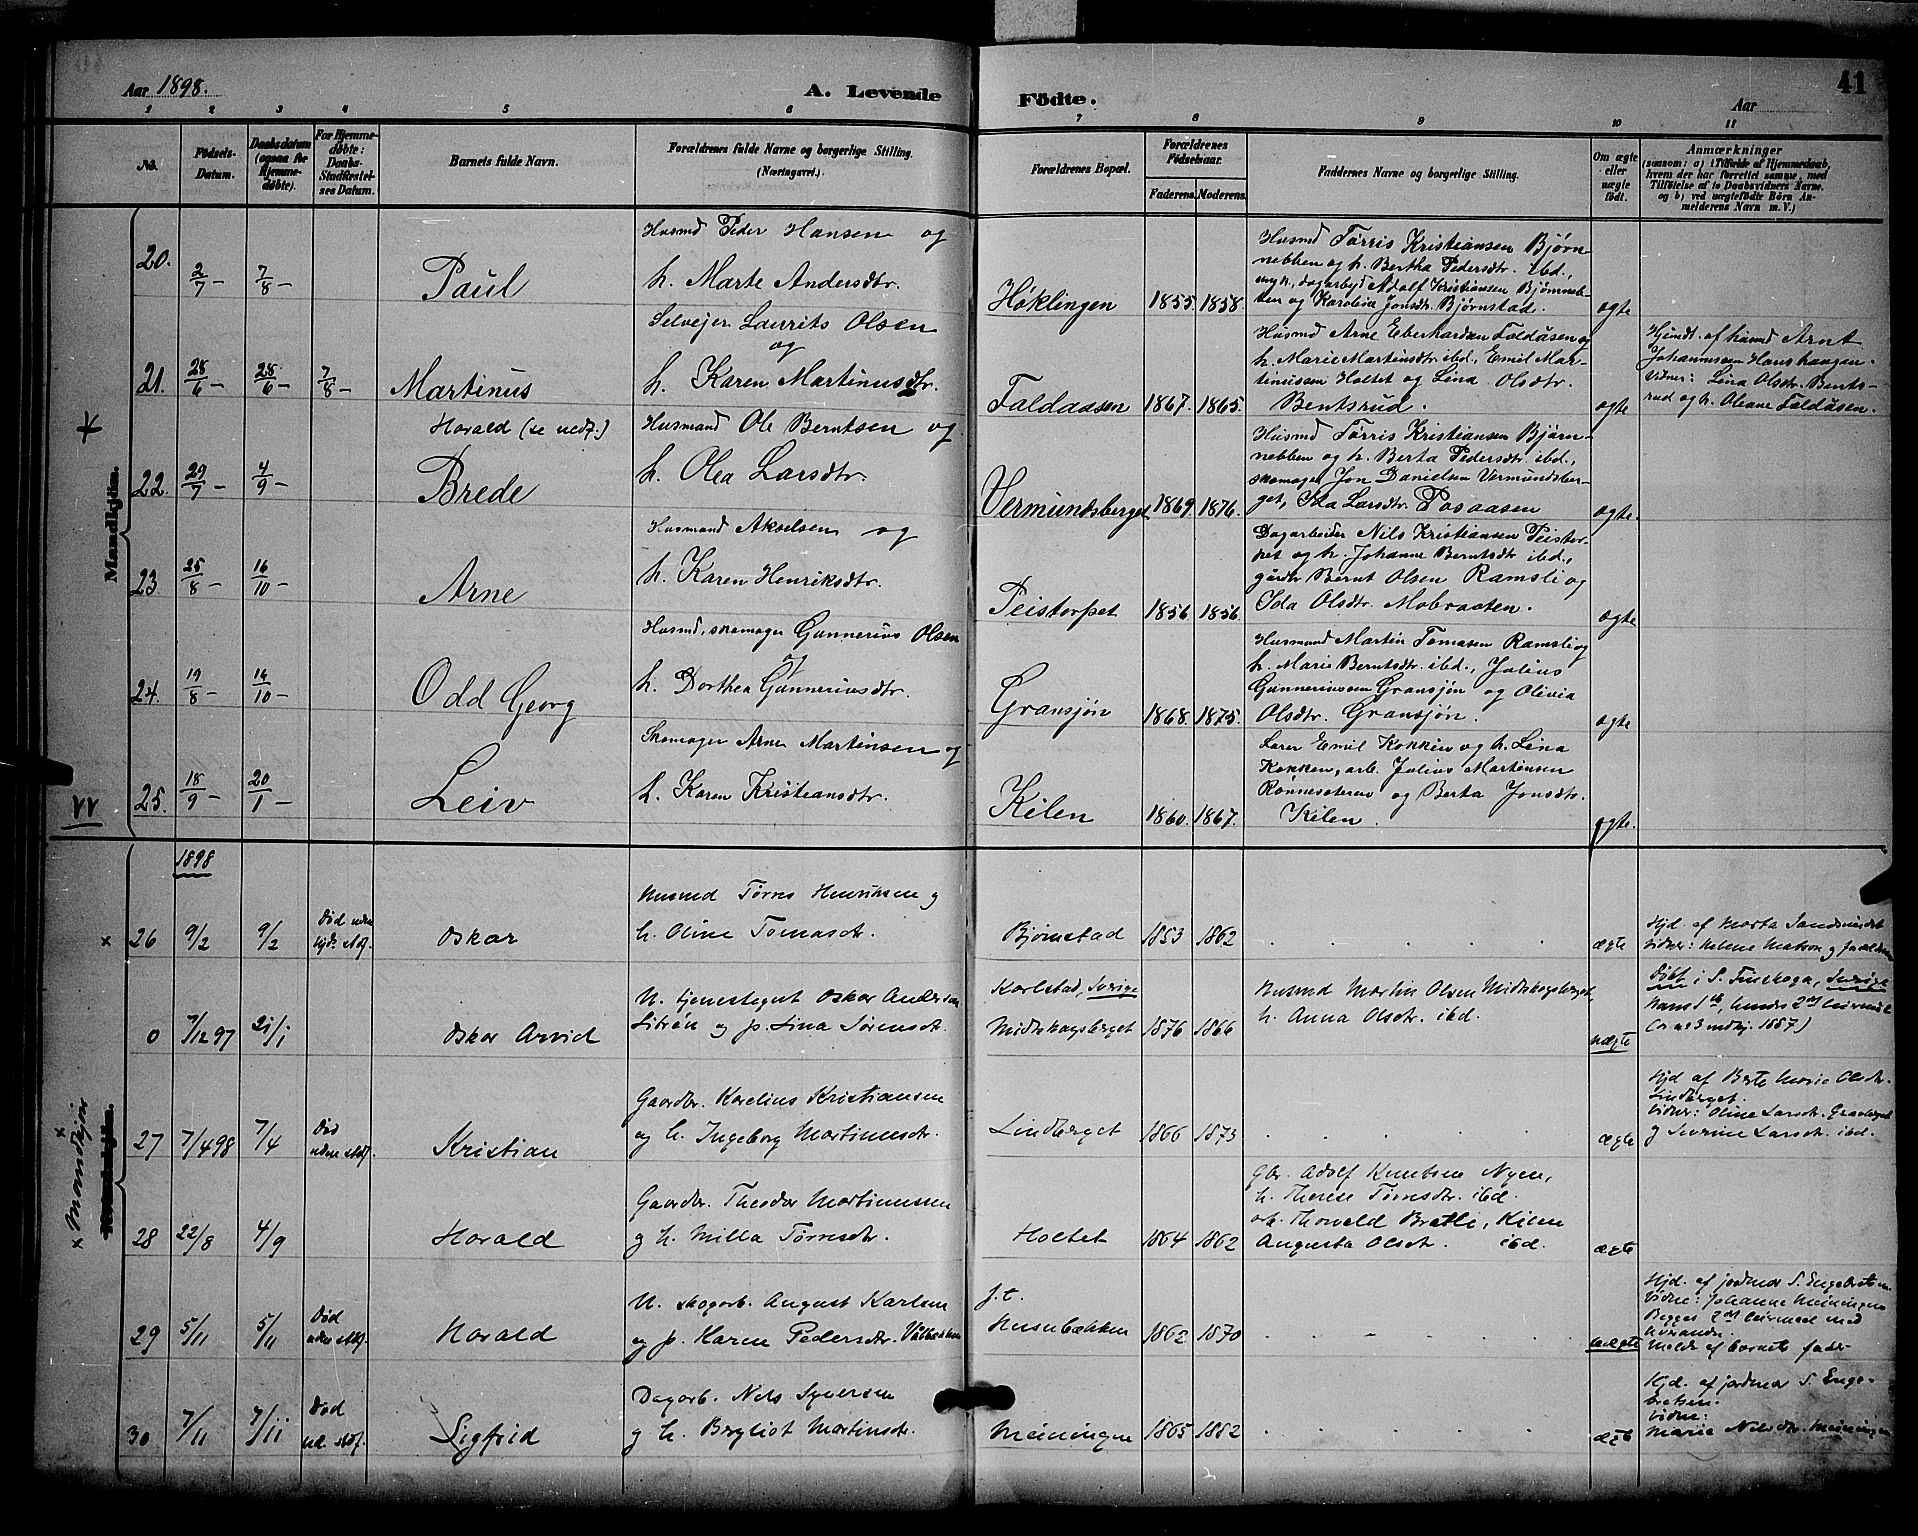 Aar 1898.
A. Levende
Födte.
Aar
41
1 2 3 4 5 6 7 8 9 10 11
No.
Födsels-
Datum.
Daabsdatum
(ogsaa for
Hjemme-
döbte).
For Hjemme-
döbte:
Daabs-
Stadfæstel-
ses Datum.
Barnets fulde Navn.
Forældrenes fulde Navne og borgerlige Stilling.
(Næringsvei.)
Forældrenes Bopæl.
Forældrenes
Födselsaar.
Faderens. Moderens.
Faddernes Navne og borgerlige Stilling.
Om ægte
eller
uægte
födt.
Anmærkninger
(saasom: a) i Tilfælde af Hjemmedaab,
hvem der har forrettet samme, med
Tilföielse af to Daabsvidners Navne.
og b) ved uægtefödte Börn An-
melderens Navn m.V.)
Mandkjön.
20. 2/7 – 7/8 –
Paul
Husmd Peder Hansen og
h. Marte Andersdtr.
Høklingen 1855. 1858.
Husmd Tørris Kristiansen Bjørn-
nebben og h. Bertha Pedersdtr. ibd.,
ungk., dagarbjd Adolf Kristiansen Bjørnneb-
ben og Karoline Jonsdtr. Bjørnstad.
ægte
21. 28/6 – 28/6 – 7/8 –
Martinus
Selvejer Laurits Olsen
og
h. Karen Martinusdtr.
Faldaasen 1867. 1865.
Husmd Arne Eberhardsen Faldåsen og
h. Marie Martinsdtr. ibd., Emil Mar-
tinussen Holtet og Lina Olsdtr.
Bentsrud.
ægte
Hjmdt. af husmd Arnt
Johannesen Hanshaugen.
Vidner: Lina Olsdtr. Bents-
rud og h. Oleane Faldåsen.
Harald (se nedf.)
22. 29/7 – 4/9 –
Brede
Husmand Ole Berntsen og
h. Olea Larsdtr.
Vermundsberget 1869. 1876.
Husmd Tørris Kristiansen Bjørn-
nebben og h. Berta Pedersdtr. ibd.,
skomager Jon Danielsen Vermundsber-
get, Ida Larsdtr. Posaasen
ægte.
23. 25/8 – 16/10 –
Arne
Husmand Akselsen og
h. Karen Henriksdtr.
Peistorpet 1856 1856.
Dagarbeider Nils Kristiansen Peistor-
pet og h. Johanne Berntsdtr ibd.,
gårdbr Bernt Olsen Ramsli og
Ida Olsdtr. Mobraaten.
ægte
24. 19/8 – 16/10 –
Odd Georg
Husmd, skomager Gunnerius Olsen
og
h. Dorthea Gunneriusdtr.
Gransjøn 1868. 1875.
Husmand Martin Tomasen Ramsli og
h. Maria Berntsdtr. ibd., Julius
Gunneriussen Gransjøn og Olivia
Olsdtr. Gransjøn.
ægte
25. 18/9 – 20/1 –
Leiv
Skomager Arne Martinsen og
h. Karen Kristiansdtr.
Kilen 1860. 1867.
Lærer Emil Kokkin og h. Lina
Kokken, arb. Julius Martinsen
Rønnesæteren og Berta Jonsdtr.
Kilen.
ægte.
1898
x Mandkjøn
26 9/2 9/2
Død uden
hjds Stdf.
Oskar
Husmd Tørres Henriksen og
h. Oline Tomasdtr.
Bjørnstad 1853 1862
ægte
Hjd. af Marta Sandsnæset
Vidner: Helene Matson og forældrene
0 7/12 97 21/1
Oskar Arvid
U. tjenestegut Oskar Andersen
Sibrén og p. Lina Sørensdtr.
Karlstad, Sverige
Midtskogsberget 1876 1866
Husmd Martin Olsen Midtskogsberget
h. Anna Olsdtr. ibd.
uægte
Døbt i S. Finskoga, Sverige
hans 1ste, hendes 2det leiermaal
27 7/4 98 7/4
Død
uden Stdf.
Kristian
Gaardbr. Karelius Kristiansen
og h. Ingeborg Martinusdtr.
Lindberget 1866 1873
ægte
Hjd af Berte Marie Olsdtr.
Lindberget.
Vidner: Oline Larsdtr. Graaberget
og Severine Larsdtr. ibd.
28 22/8 4/9
Harald
Gaardbr. Theodor Martinussen
og h. Milla Tørresdtr.
Holtet 1864 1862
Gbr. Adolf Knutsen Nyen,
h. Therese Tørresdtr. ibd.
arb. Thorvald Bratli, Kilen
Augusta Olsdtr. ibd.
ægte
29 5/11 5/11
Død
uden Stdf.
Harald
U. skogarb. August Karlsen
og p. Karen Pedersdtr.
f. t.
Husubækken 1862 1870
uægte
Hjd. af jordmor S. Engebretsen
Vidne: Johanne Meiningen
Begges 2det leiermaal med
hverandre.
Meldt af barnets fader
30. 7/11 7/11
Død
ud. Stdf.
Sigfrid
Dagarb. Nels Syversen
og h. Brynliot Martinsdtr.
Meiningen 1865 1862
ægte
Hjd. af jordmor S. Enge-
bretsen.
Vidne:
Marie Nilsdtr. Meiningen